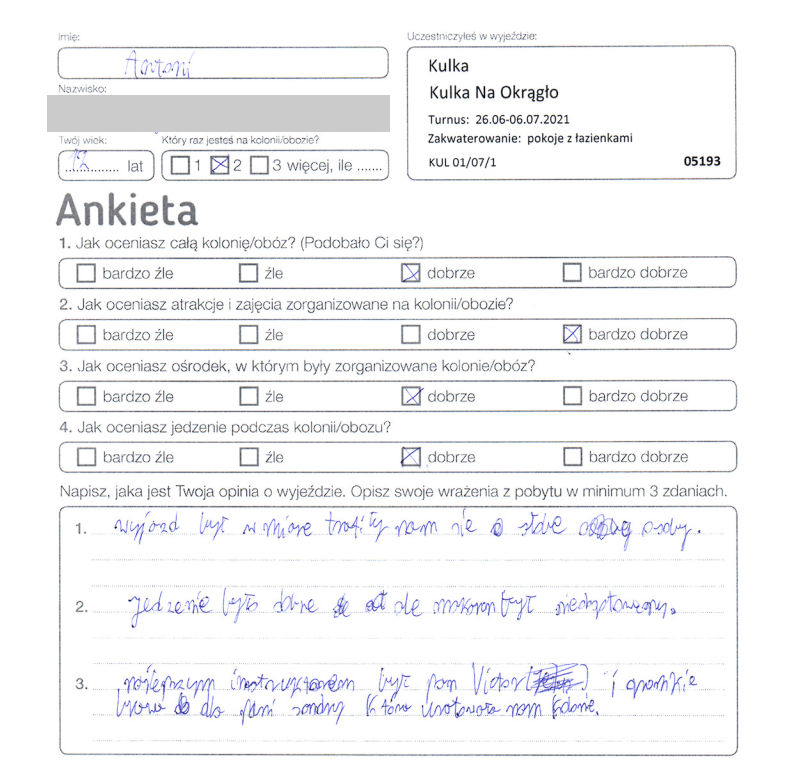 Imię:
Antoni
Nazwisko:
Twój wiek:
12 lat
Który raz jesteś na kolonii/obozie?
1 2 3 więcej, ile .......
Uczestniczyłeś w wyjeździe:
Kulka
Kulka Na Okrągło
Turnus: 26.06-06.07.2021
Zakwaterowanie: pokoje z łazienkami
KUL 01/07/1 05193
Ankieta
1. Jak oceniasz całą kolonię/obóz? (Podobało Ci się?)
bardzo źle źle dobrze bardzo dobrze
2. Jak oceniasz atrakcje i zajęcia zorganizowane na kolonii/obozie?
bardzo źle źle dobrze bardzo dobrze
3. Jak oceniasz ośrodek, w którym były zorganizowane kolonie/obóz?
bardzo źle źle dobrze bardzo dobrze
4. Jak oceniasz jedzenie podczas kolonii/obozu?
bardzo źle źle dobrze bardzo dobrze
Napisz, jaka jest Twoja opinia o wyjeździe. Opisz swoje wrażenia z pobytu w minimum 3 zdaniach.
1. wyjazd był w miare trafiły nam sie słabe osoby.
2. jedzenie było dobre ale makaron był
3. najlepszym instruktorem był pan Victor i
brawa dla pani sandry która uratowała nam